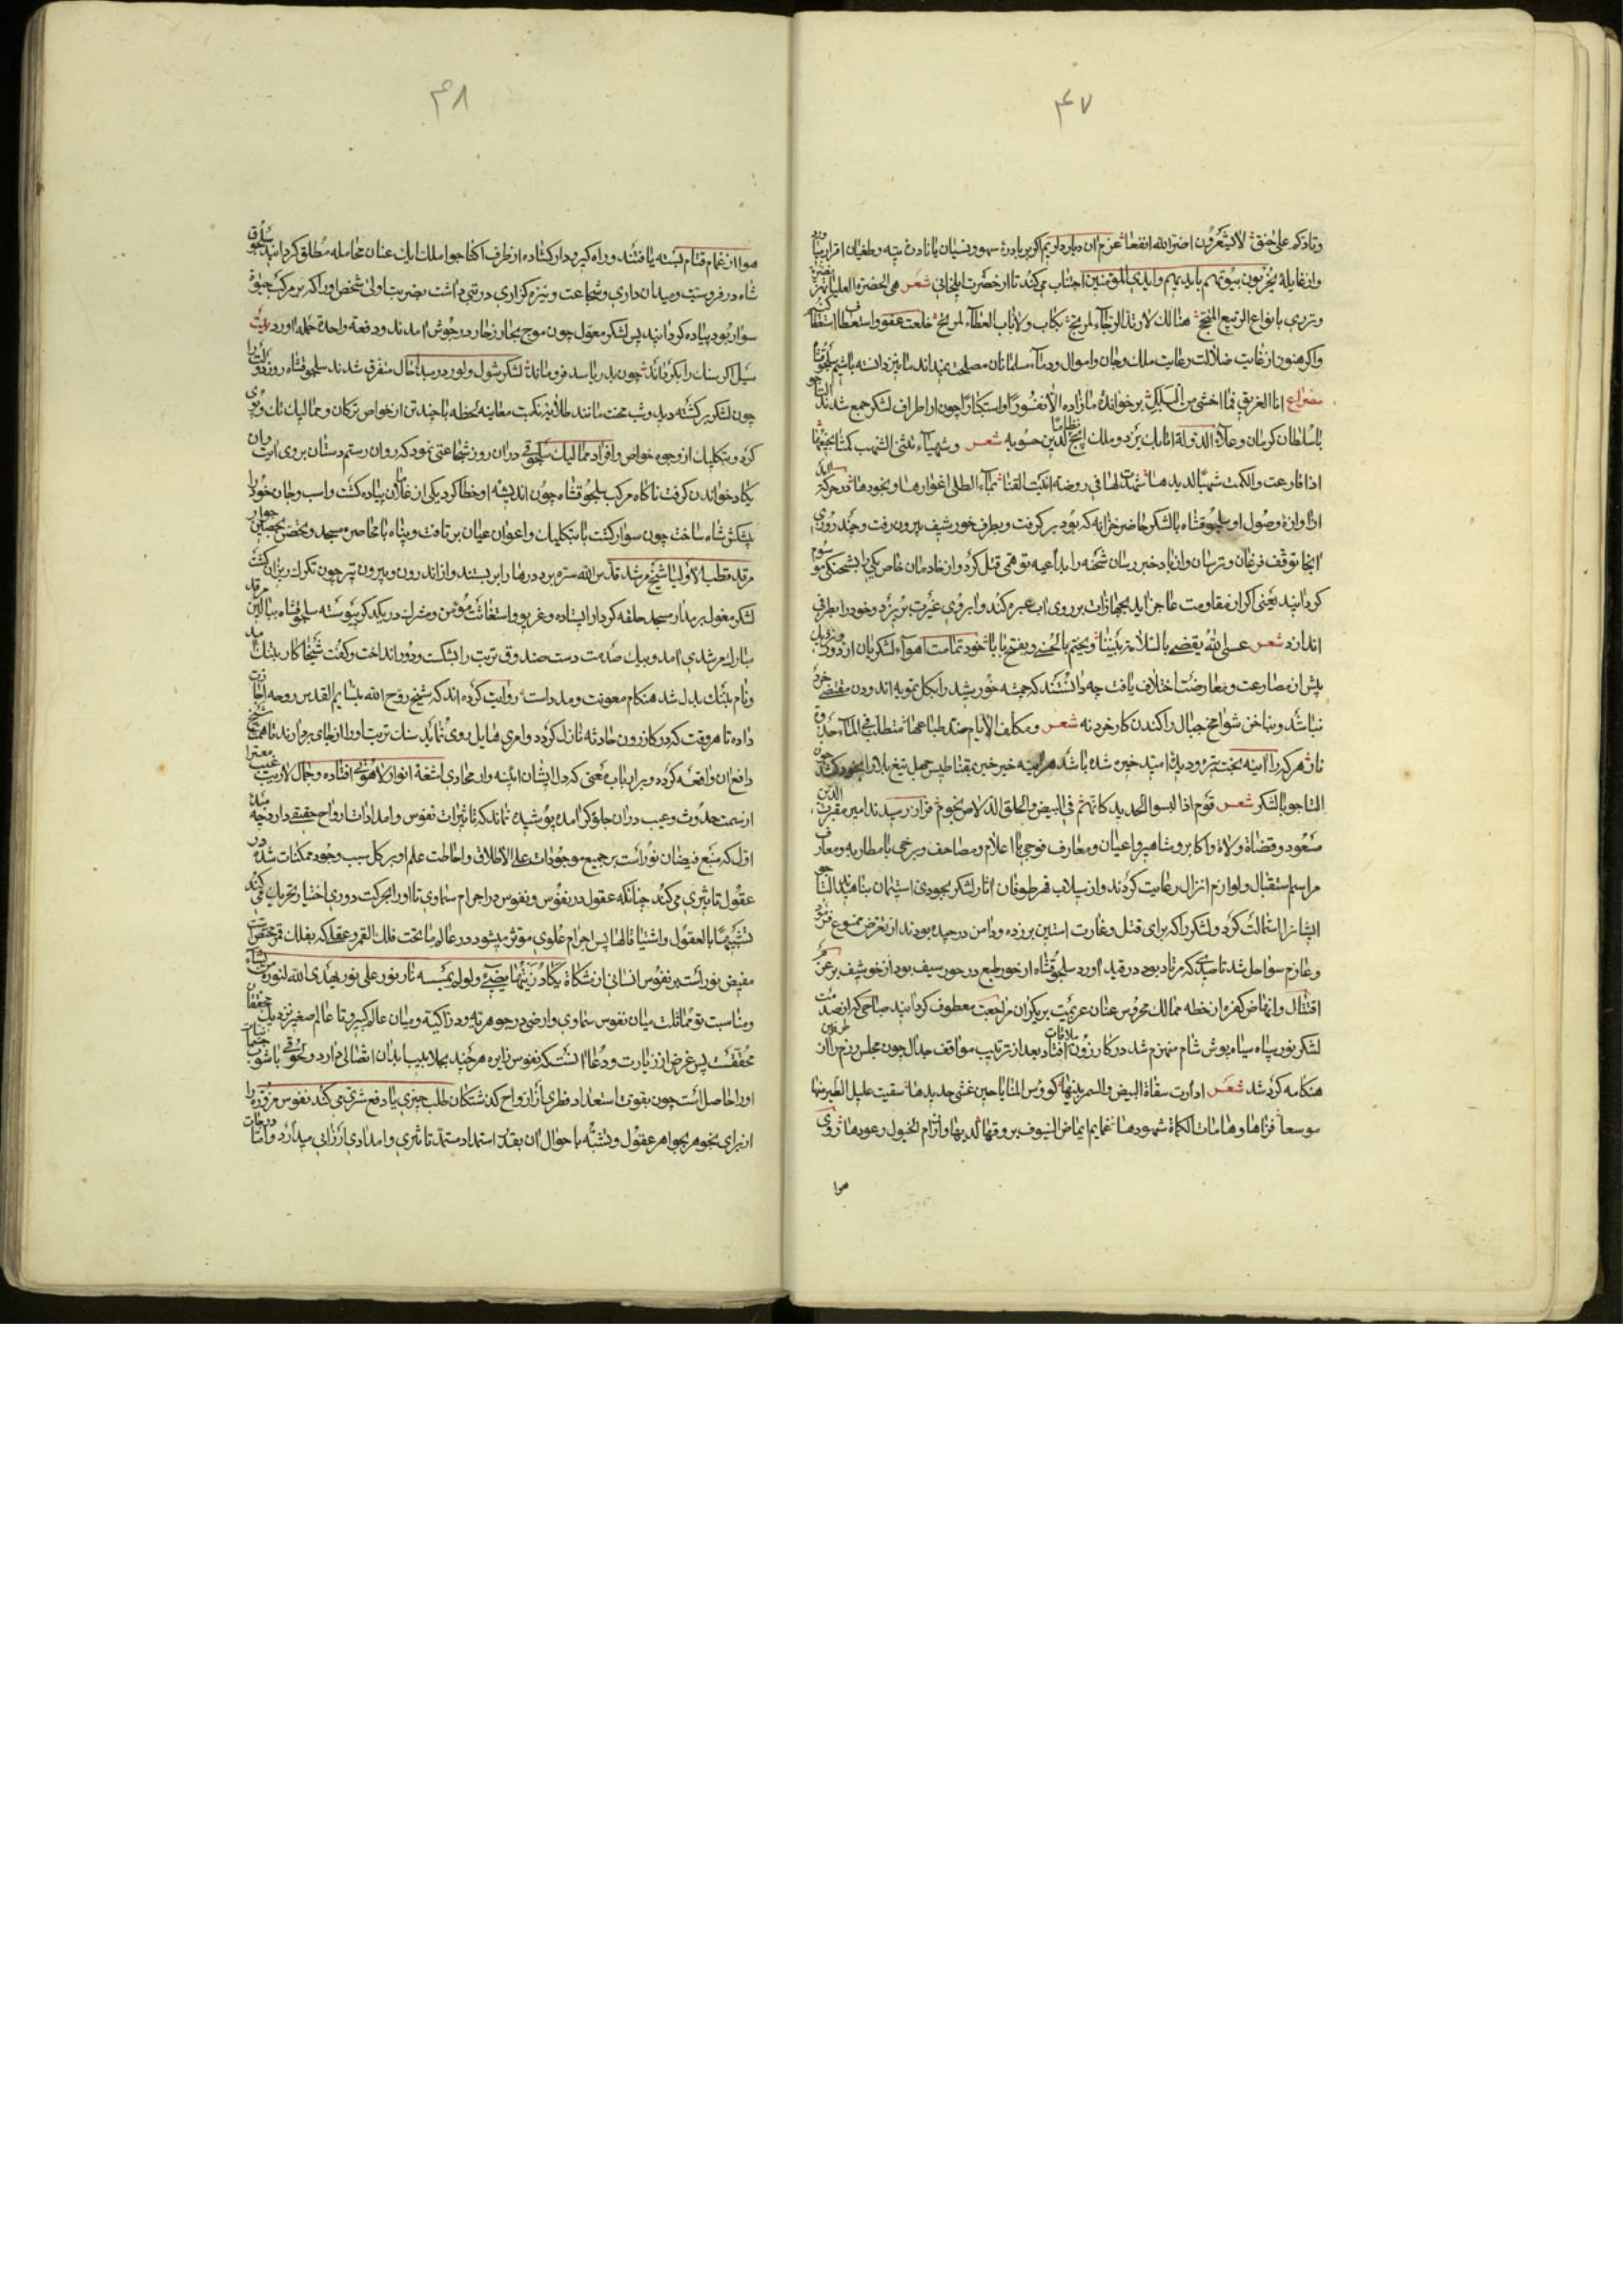 ۴۷
وتاذكه على خنق لا يشعرون اضر الله انفعها عزم ان ديار داريم اكر بر بادرة سهو ونسيان يا نادرۀ تيه وطغيان اقرار
واز غايلۀ يخربون بيوتهم بايديهم وايدى المؤمنين اجتناب مى كند تا از حضرت ايلخانى شعر هى الحضرة العليا
وتردى بانواع الربيع هنالك لارفد الرجاء لمرتج بكاب ولا باب العطاء لمرتج خلعت عفو واستعطاف
واكر هنوز از غايت ضلالت رعايت ملك وجان واموال ودماء مسلمانان مصلحت نميداند ما نيز دانسته باشيم سلجوقشاه
مصراع انا الغريق فما خشى من البلل برخوانده ما زاده الا نفورا واستكبارا چون از اطراف لشكر جمع شدند التاجو
با سلطان كرمان وعلاء الدوله اتابك يزد وملك ايج نظام الدين حسويه شعر وشهباء تثنى الشهب كمتا
اذا قارعت والكمت شهبا لديدها
ازاوازۀ وصول او سلجوقشاه با لشكر حاضر خزانه كه بود بر كرفت وبطرف خورشيف بيرون رفت وچند روزى
انجا توقف فرغان وترسان وانباد خبر رسان شحنه را بداعيه توهمى قتل كرد واز خادمان خاص يكى را بشحنكى موسوم
كردانيد يعنى اكر از مقاومت عاجز ايد بجهازات بر روى اب عبره كند وابروى غيرت بريزد وخود را بطرفى
اندازد شعر عسى الله يقضى بالتلاقى بيننا ويختم بالحسنى ويفتح بابا خود تمامت اهواء لشكريان از
پيش از مصارعت ومعارضت اختلاف يافت چه دانستند كه چشمه خورشيد را بكل تمويه اندودن مقتضى خرد
نباشد وبناخن شوامخ جبال را كندن كار خرد نه شعر ومكلف الايام ضد طباعها متطلب فى الماء جذوة
نار هر كرا اينه بخت تيره وديدۀ اميد خيره شده باشد هراينه خير خير بمقناطيس جهل تيغ بلا را بخود كشد چون
التاجو با لشكر شعر قوم اذا لبسوا الحديد كانهم فى البيض والحلق الدلاص نجوم فراز رسيدند امير مقرب الدين
مسعود وقضاة ولاة واكابر ومشاهير واعيان ومعارف فوجى با اعلام ومصاحف وبرخى با مطاربه ومعازف
مراسم استقبال ولوازم انزال رعايت كردند واز سيلاب قهر طوفان اثار لشكر بجودى استيمان پناهيد التاجو
ايشانرا استمالت كرد ولشكر را كه براى قتل وغارت استين بر زده ودامن در چيده بودند از تعرض ممنوع فرمود
وعازم سواحل شد تا صيدى كه مرتاد بود در قيد اورد سلجوقشاه از خور طبع در خور سيف بود از خورشيف بر عزم
اقتتال وانهاض كفره از خطه ممالك محروس عنان عزيمت بر يكران مراجعت معطوف كردانيد صباحى كه از صدمت
لشكر نور سپاه سياه پوش شام منهزم شد در كازرون ملاقات طرفين افتاد بعد از ترتيب مواقف جدال چون مجلس رزم را از
هنكامه كرد شد شعر ادارت سقاة البيض والسمر بينها كووس المنايا حين غنى حديدها سقيت
موسعا فراها وهامات الكماة شهودها غمايم ايماض السيوف بروقها لديها وارزام الخيول رعودها
هوا
۴۸
هوا از غمام قتام بسته يافتند وراه كير ودار كشاده از طرف التاجو ملك ايبك عنان مجامله مطلق كردانيد سلجوق
شاه در فروسيت وميدان دارى وشجاعت ونيزه كزارى درستى داشت بضربت اولى شخص او را كه بر مركب
سوار بود پياده كردانيد پس لشكر مغول چون موج بحار زخار در جوش امدند ودفعة واحدة حمله اوردند بيت
سيل اكر سنك را بكرداند چون بدريا رسد فرو ماند لشكر شول ولور در مبدا حال متفرق شدند سلجوقشاه روز دولت را
چون لشكر بركشته ديد وشب محنت مانند طلايۀ نكبت معاينه لحظه با چند تن از خواص تركان ومماليك تك وپوى
كرد وبتكليك از وجوه خواص وافراد مماليك سلجوقى دران روز شجاعتى نمود كه روان رستم دستان بر وى ايت وان
يكاد خواندن كرفت ناكاه مركب سلجوقشاه چون انديشه او خطا كرد يكى از غلامان پياده كشت واسب وجان خود را
پيشكش شاه ساخت چون سوار كشت با بتكليك واعوان عيان بر تافت وپناه با محاصره مسجد وتحصن بحصانت جوار
مرقد قطب الاوليا شيخ مرشد قدس الله سره برد درها را بر بستند واز اندرون وبيرون تير چون تكرك ريزان كشت
لشكر مغول بر مدار مسجد حلقه كردار ايستاده وغريو واستغاثت مومن ومشرك در يكديكر پيوسته سلجوقشاه ببالين مرقد
مبارك مرشدى امد وبيك صدمت دست صندوق تربت را بشكست ودور انداخت وكفت شيخا كار بننك
ونام بننك بدل شد هنكام معونت ومدد است روايت كرده اند كه شيخ روح الله بنسايم القدس روحه اجازت
داده تا هر وقت كه در كازرون حادثه نازل كردد وامرى هايل روى نمايد سنك تربت او را از جاى بردارند تا همت شيخ
دافع ان واقعه كردد وبر ارباب معنى كه دل ايشان اينه وار محاذى اشعۀ انوار لاهوتى افتاده وجمال لاريب
از سمت حدوث وعيب دران جلوه كر امده پوشيده نماند كه تاثيرات نفوس وامدادات ارواح حقيقتى دارد چه
اول كه منبع فيضان نور است بر جميع موجودات على الاطلاق واحاطت علم او بر كل سبب وجود ممكنات شده در
عقول تاثيرى مى كند چنانكه عقول در نفوس ونفوس در اجرام سماوى تا او را بحركت دورى اختيار تحريك مى كند
تشبيها بالعقول واشتياقا لها پس اجرام علوى موثر ميشود در عالم ما تحت فلك القمر وعقلى كه بفلك قمر مختص است
مفيض نور است بر نفوس انسانى از مشكاة يكاد زيتها يضيئ ولو لم تمسسه نار نور على نور يهدى الله لنوره من يشاء
ومناسبت تو مماثلت ميان نفوس سماوى وارضى در جوهريت ودراكيه وميان عالم كبير وتا عالم صغير نزديك
محققست پس غرض از زيارت ودعا انست كه نفوس زايره هر چند بجلابيب ابدان اتصالى دارد
او را حاصل است چون بقوت استعداد فطرى از ارواح كذشتكان طلب چيزى يا دفع شرى مى كند نفوس مزوره را
از براى تجوهر بجواهر عقول وتشبه باحوال ان بقدر استمداد مستمد تاثيرى وامدادى ارزانى ميدارد